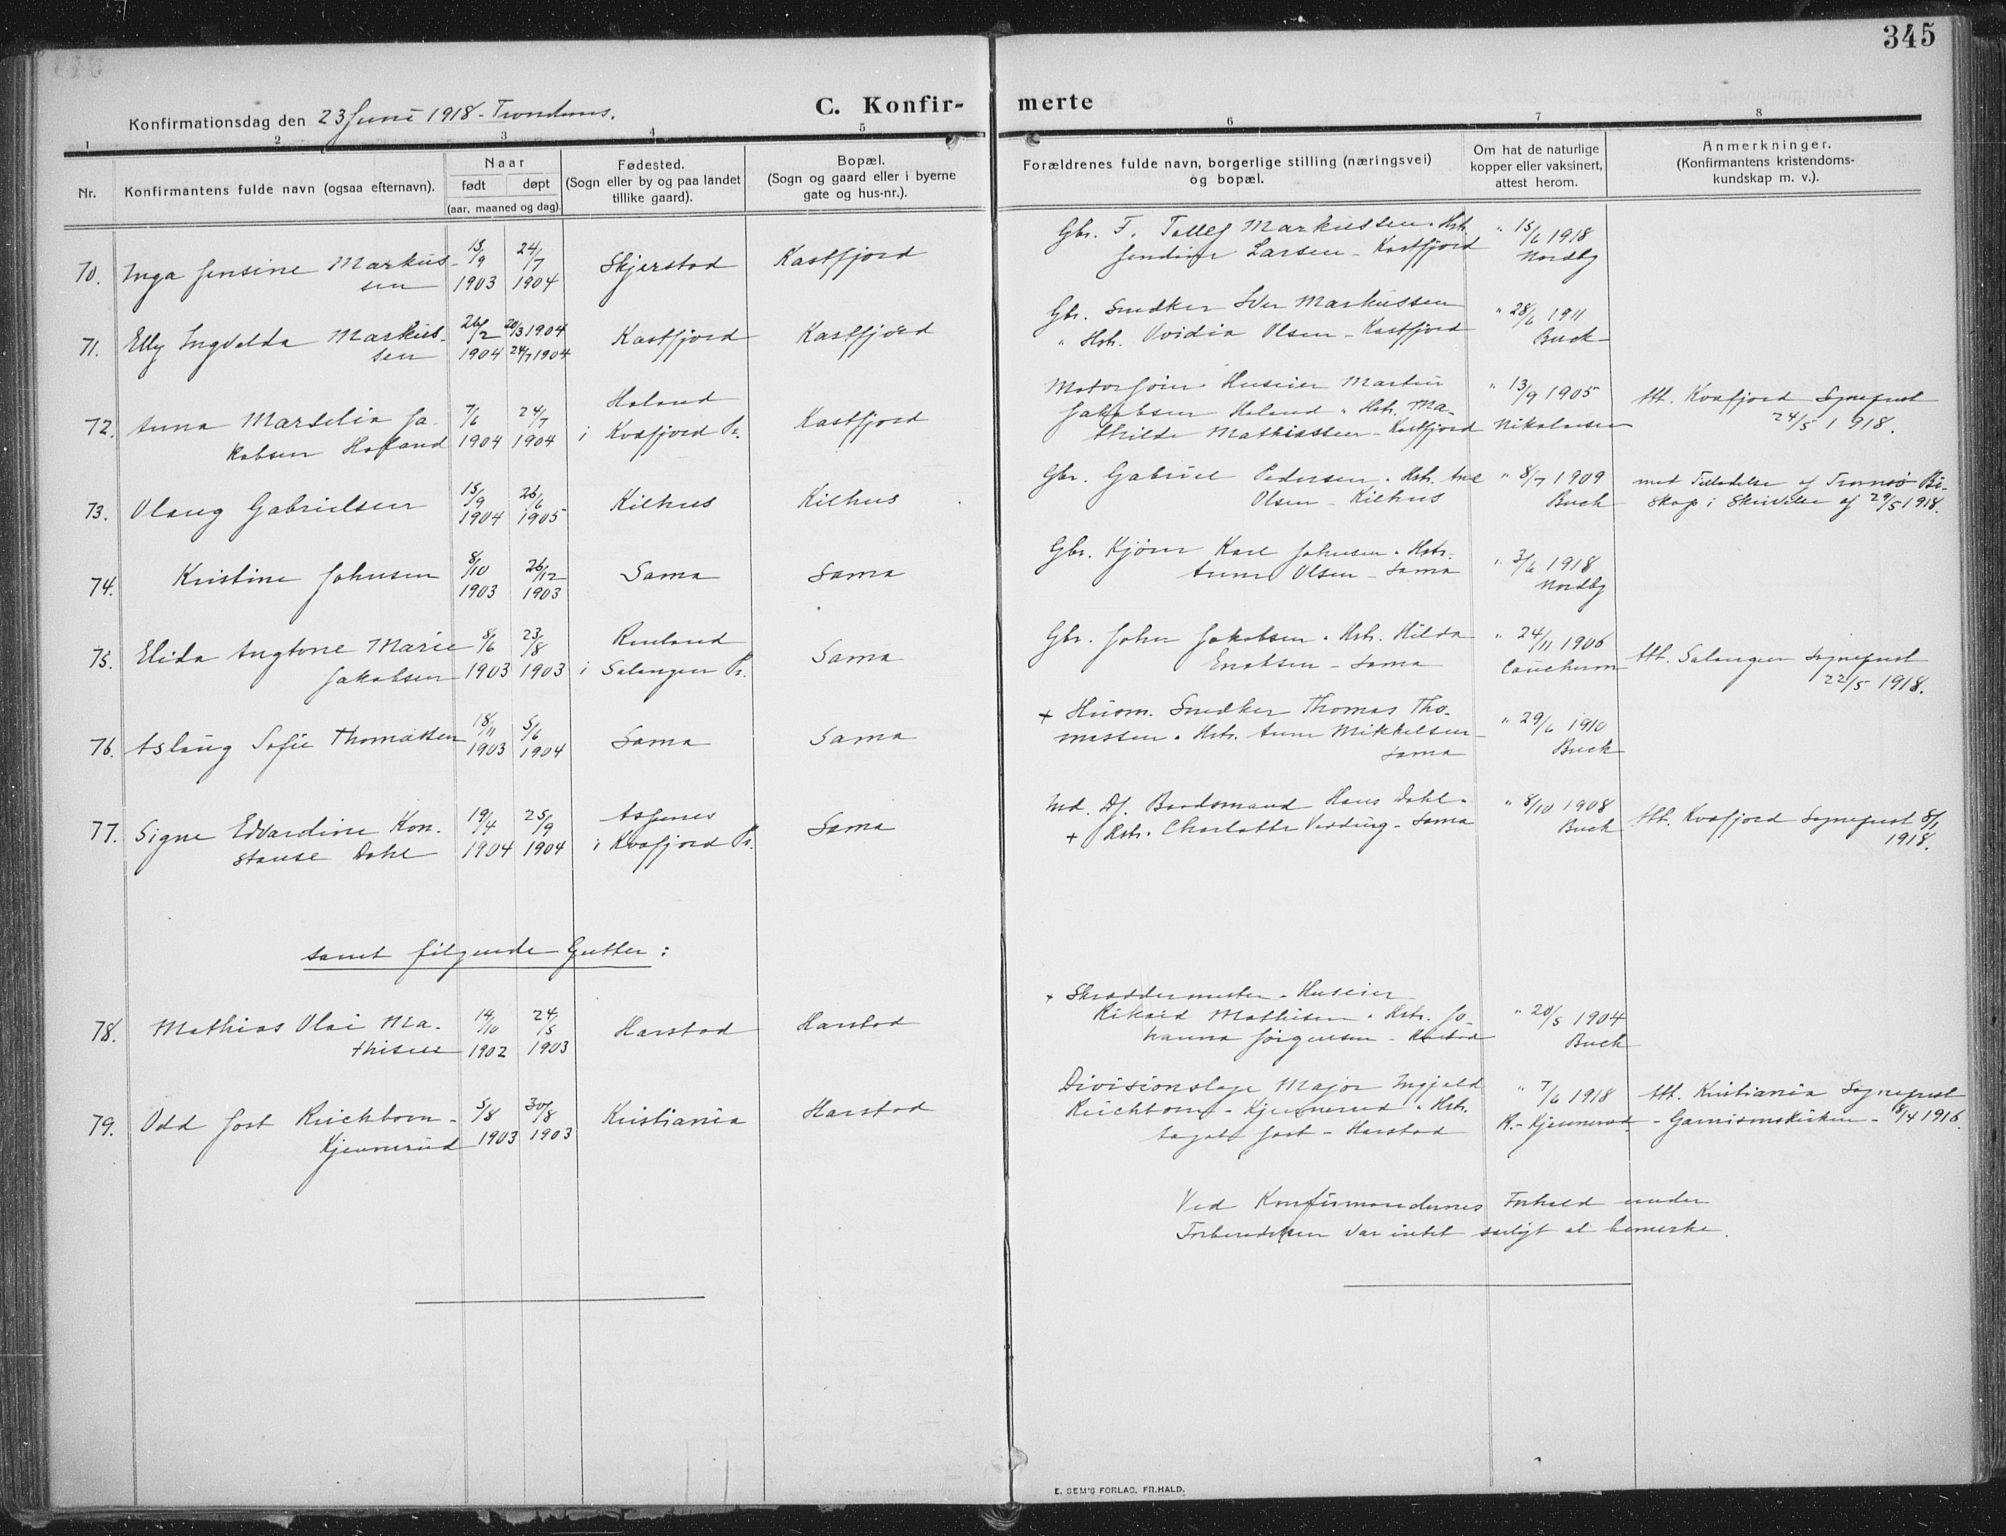 345
C. Konfir-
merte
Konfirmationsdag den 23 Juni 1918 - Trondenes.
1 2 3 4 5 6 7 8
Nr.
Konfirmantens fulde navn (ogsaa efternavn).
Naar
født
døpt
(aar, maaned og dag)
Fødested.
(Sogn eller by og paa landet
tillike gaard).
Bopæl.
(Sogn og gaard eller i byerne
gate og hus-nr.).
Forældrenes fulde navn, borgerlige stilling (næringsvei)
og bopæl.
Om hat de naturlige
kopper eller vaksinert,
attest herom.
Anmerkninger.
(Konfirmantens kristendoms-
kundskap m. v.).
70. Inga Jensine Markus-
sen
15/9 1903
24/7 1904
Skjerstad
Kastfjord
Gbr. F. Tollef Markussen . Hstr.
Larsen - Kastfjord
" 15/6 1918
Nordby
71. Elly Ingvalda Markus-
sen
26/2 1904
20/3 1904
24/7 1904
Kastfjord
Kastfjord
Gbr. Snedker Iver Markussen
" Hstr. Ovidia Olsen - Kastfjord
" 28/6 1911
Buck
72. Anna Marselia Ja-
kobsen Holand
7/6 1904
24/7 1904
Holand
i Kvæfjord Pr.
Kastfjord
Huseier Martin
Jakobsen Holand . Hstr. Ma-
thilde Mathiassen - Kastfjord
" 13/9 1905
Nikolaisen
Att. Kvæfjord Sogneprest
24/5 1918.
73. Olaug Gabrielsen
15/9 1904
26/6 1905
Kilhus
Kilhus
Gbr. Gabriel Pedersen . Hstr. Ane
Olsen - Kilhus
" 8/7 1909
Buck
med Tilladelse af Tromsø Bi-
skop i Skrivelse af 29/5 1918.
74. Kristine Johnsen
8/10 1903
26/12 1903
Sama
Sama
Gbr. Kjører Karl Johnsen . Hstr.
Anna Olsen - Sama
" 3/6 1918
Nordby
75. Elida Angtone Marie
Jakobsen
8/6 1903
23/8 1903
i Salangen Pr.
Sama
Gbr. Johan Jakobsen . Hstr. Hilda
Enoksen - Sama
" 24/11 1906
Att. Salangen Sogneprest
22/5 1918.
76. Aslaug Sofie Thomassen
18/11 1903
5/6 1904
Sama
Sama
+ Husm. Snedker Thomas Tho-
massen . Hstr. Anna Mikkelsen -
Sama
" 29/6 1910
Buck
77. Signe Edvardine Kon-
stanse Dahl
19/4 1904
25/9 1904
Aspenes
i Kvæfjord Pr.
Sama
Baadsmand Hans Dahl .
+ Hstr. Charlotte - Sama
" 8/10 1908
Buck
Att. Kvæfjord Sogneprest
1918.
samt følgende Gutter:
78. Mathias Olai Ma-
thisen
14/10 1902
24/5 1903
Harstad
Harstad
+ Skræddermester . Huseier
Rikard Mathisen . Hstr. Jo-
hanna Jørgensen - Harstad
" 20/5 1904
Buck
79. Odd Jost Reichborn -
Kjennerud
5/8 1903
30/8 1903
Kristiania
Harstad
Divisionslæge Major Ingjald
Reichborn - Kjennerud . Hstr.
Jost - Harstad
" 7/6 1918
R. - Kjennerud
Att. Kristiania Sogneprest
- Garnisonskirken - 18/4 1916.
Ved Konfirmandernes Forhold under
Forberedelsen var intet særligt at bemerke.
E. SEM'S FORLAG. FR.HALD.